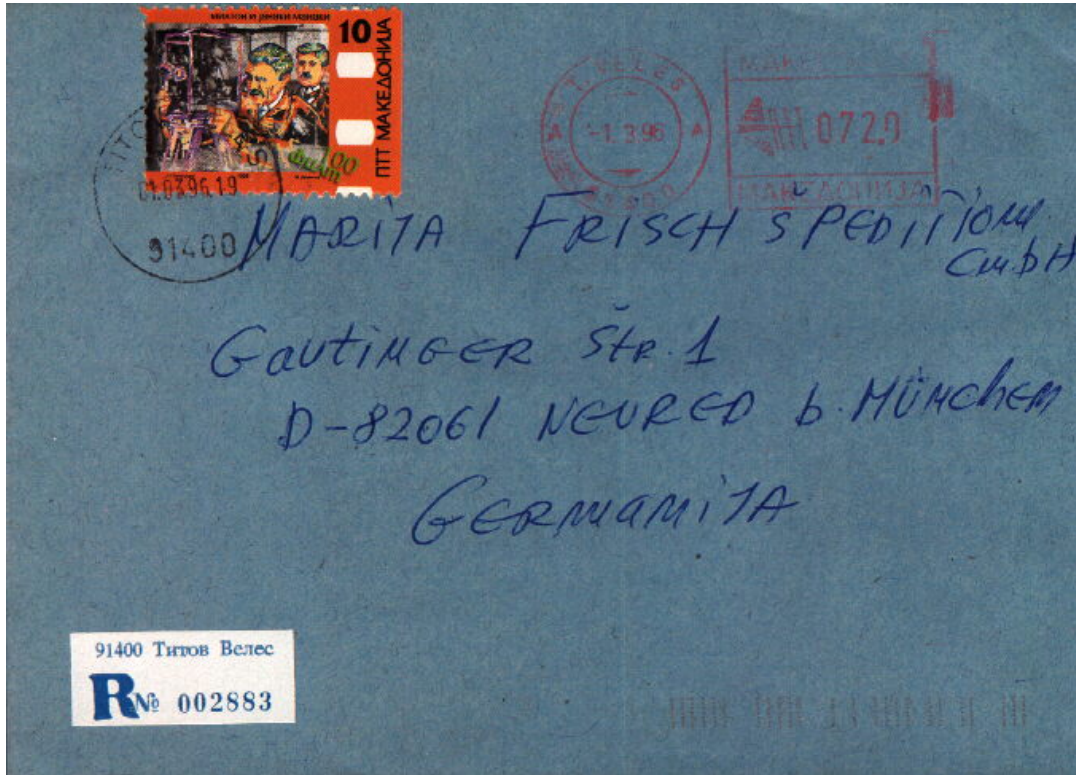 10
ПТТ МАКЕДОНИЈА
100
ФИЛМ
01.03.96.19
91400
T. VELES
-1. 3.96
0720
МАКЕДОНИЈА
MARIJA FRISCH SPEDITION
GmbH
Gautinger Str. 1
D-82061 NEURED b. München
GERMANIJA
91400 Титов Велес
R№ 002883